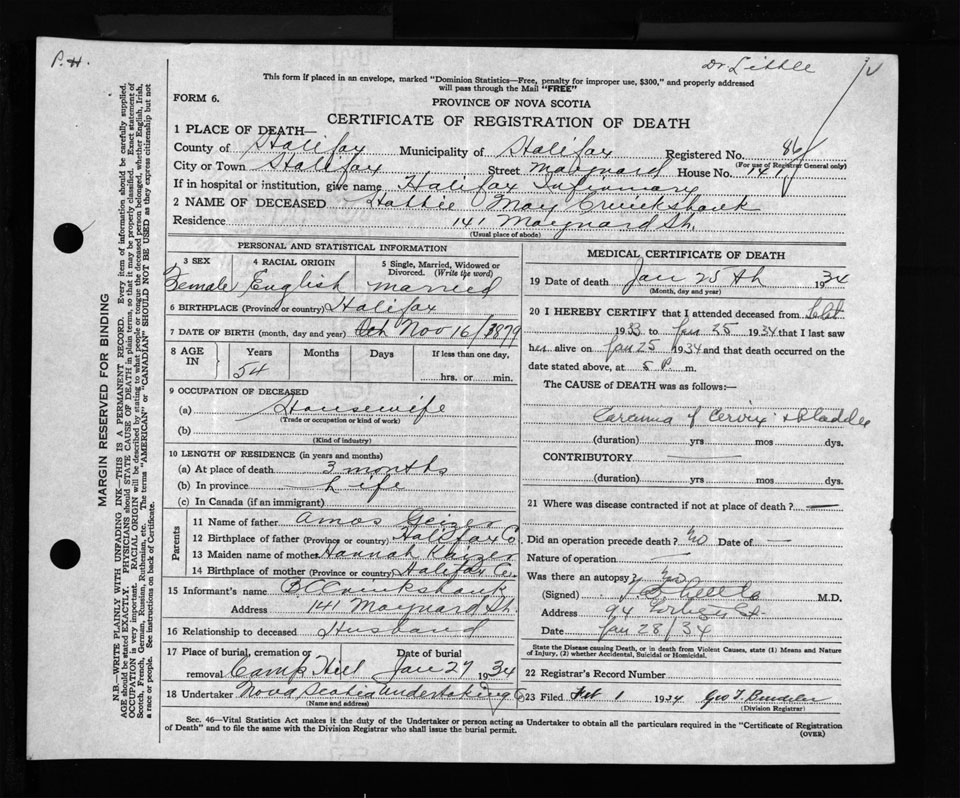 P.H.
Dr Little
This form if placed in an envelope, marked "Dominion Statistics—Free, penalty for improper use, $300," and properly addressed
will pass through the Mail "FREE"
FORM 6.
PROVINCE OF NOVA SCOTIA
CERTIFICATE OF REGISTRATION OF DEATH
1 PLACE OF DEATH—
County of Halifax Municipality of Halifax Registered No. 86
(For use of Registrar General only)
City or Town Halifax Street Maynard House No. 141
If in hospital or institution, give name Halifax Infirmary
2 NAME OF DECEASED Hattie May Cruickshank
Residence 141 Maynard St.
(Usual place of abode)
PERSONAL AND STATISTICAL INFORMATION
3 SEX 4 RACIAL ORIGIN 5 Single, Married, Widowed or
Divorced. (Write the word)
Female English married
6 BIRTHPLACE (Province or country) Halifax
7 DATE OF BIRTH (month, day and year) Nov 16/1879
8 AGE IN Years Months Days If less than one day,
54 hrs. or min.
9 OCCUPATION OF DECEASED
(a) Housewife
(Trade or occupation or kind of work)
(b)
(Kind of industry)
10 LENGTH OF RESIDENCE (in years and months)
(a) At place of death 3 months
(b) In province Life
(c) In Canada (if an immigrant)
Parents
11 Name of father Amos Geizer
12 Birthplace of father (Province or country) Halifax Co.
13 Maiden name of mother Hannah Kaizer
14 Birthplace of mother (Province or country) Halifax Co.
15 Informant's name Cruickshank
Address 141 Maynard St.
16 Relationship to deceased Husband
17 Place of burial, cremation or removal Date of burial
Camp Hill Jan 27 1934
18 Undertaker Nova Scotia Undertaking Co
(Name and address)
MEDICAL CERTIFICATE OF DEATH
19 Date of death Jan 25th 1934
(Month, day and year)
20 I HEREBY CERTIFY that I attended deceased from
1933 to Jan 25 1934 that I last saw
her alive on Jan 25 1934 and that death occurred on the
date stated above, at 5 P m.
The CAUSE of DEATH was as follows:
Carcinoma of Cervix & bladder
(duration) yrs mos dys.
CONTRIBUTORY
(duration) yrs mos dys.
21 Where was disease contracted if not at place of death?—
Did an operation precede death? No Date of —
Nature of operation —
Was there an autopsy? no
(Signed) M.D,
Address 94
Date Jan 28/34
State the Disease causing Death, or in death from Violent Causes, state (1) Means and Nature
of Injury, (2) whether Accidental, Suicidal or Homicidal.
22 Registrar's Record Number
23 Filed Feb 1 1934 Geo T.
(Division Registrar)
Sec. 46—Vital Statistics Act makes it the duty of the Undertaker or person acting as Undertaker to obtain all the particulars required in the "Certificate of Registration
of Death" and to file the same with the Division Registrar who shall issue the burial permit.
(OVER)
MARGIN RESERVED FOR BINDING
N.B.—WRITE PLAINLY WITH UNFADING INK—THIS IS A PERMANENT RECORD. Every item of information should be carefully supplied.
AGE should be stated EXACTLY. PHYSICIANS should STATE CAUSE OF DEATH in plain terms, so that it may be properly classified. Exact statement of
OCCUPATION is very important. RACIAL ORIGIN will be described by stating to what people or tongue the deceased person belonged, whether English, Irish,
Scotch, French, German, Russian, Ruthenian, etc. The terms "AMERICAN" or "CANADIAN" SHOULD NOT BE USED as they express citizenship but not
a race or people. See instructions on back of Certificate.